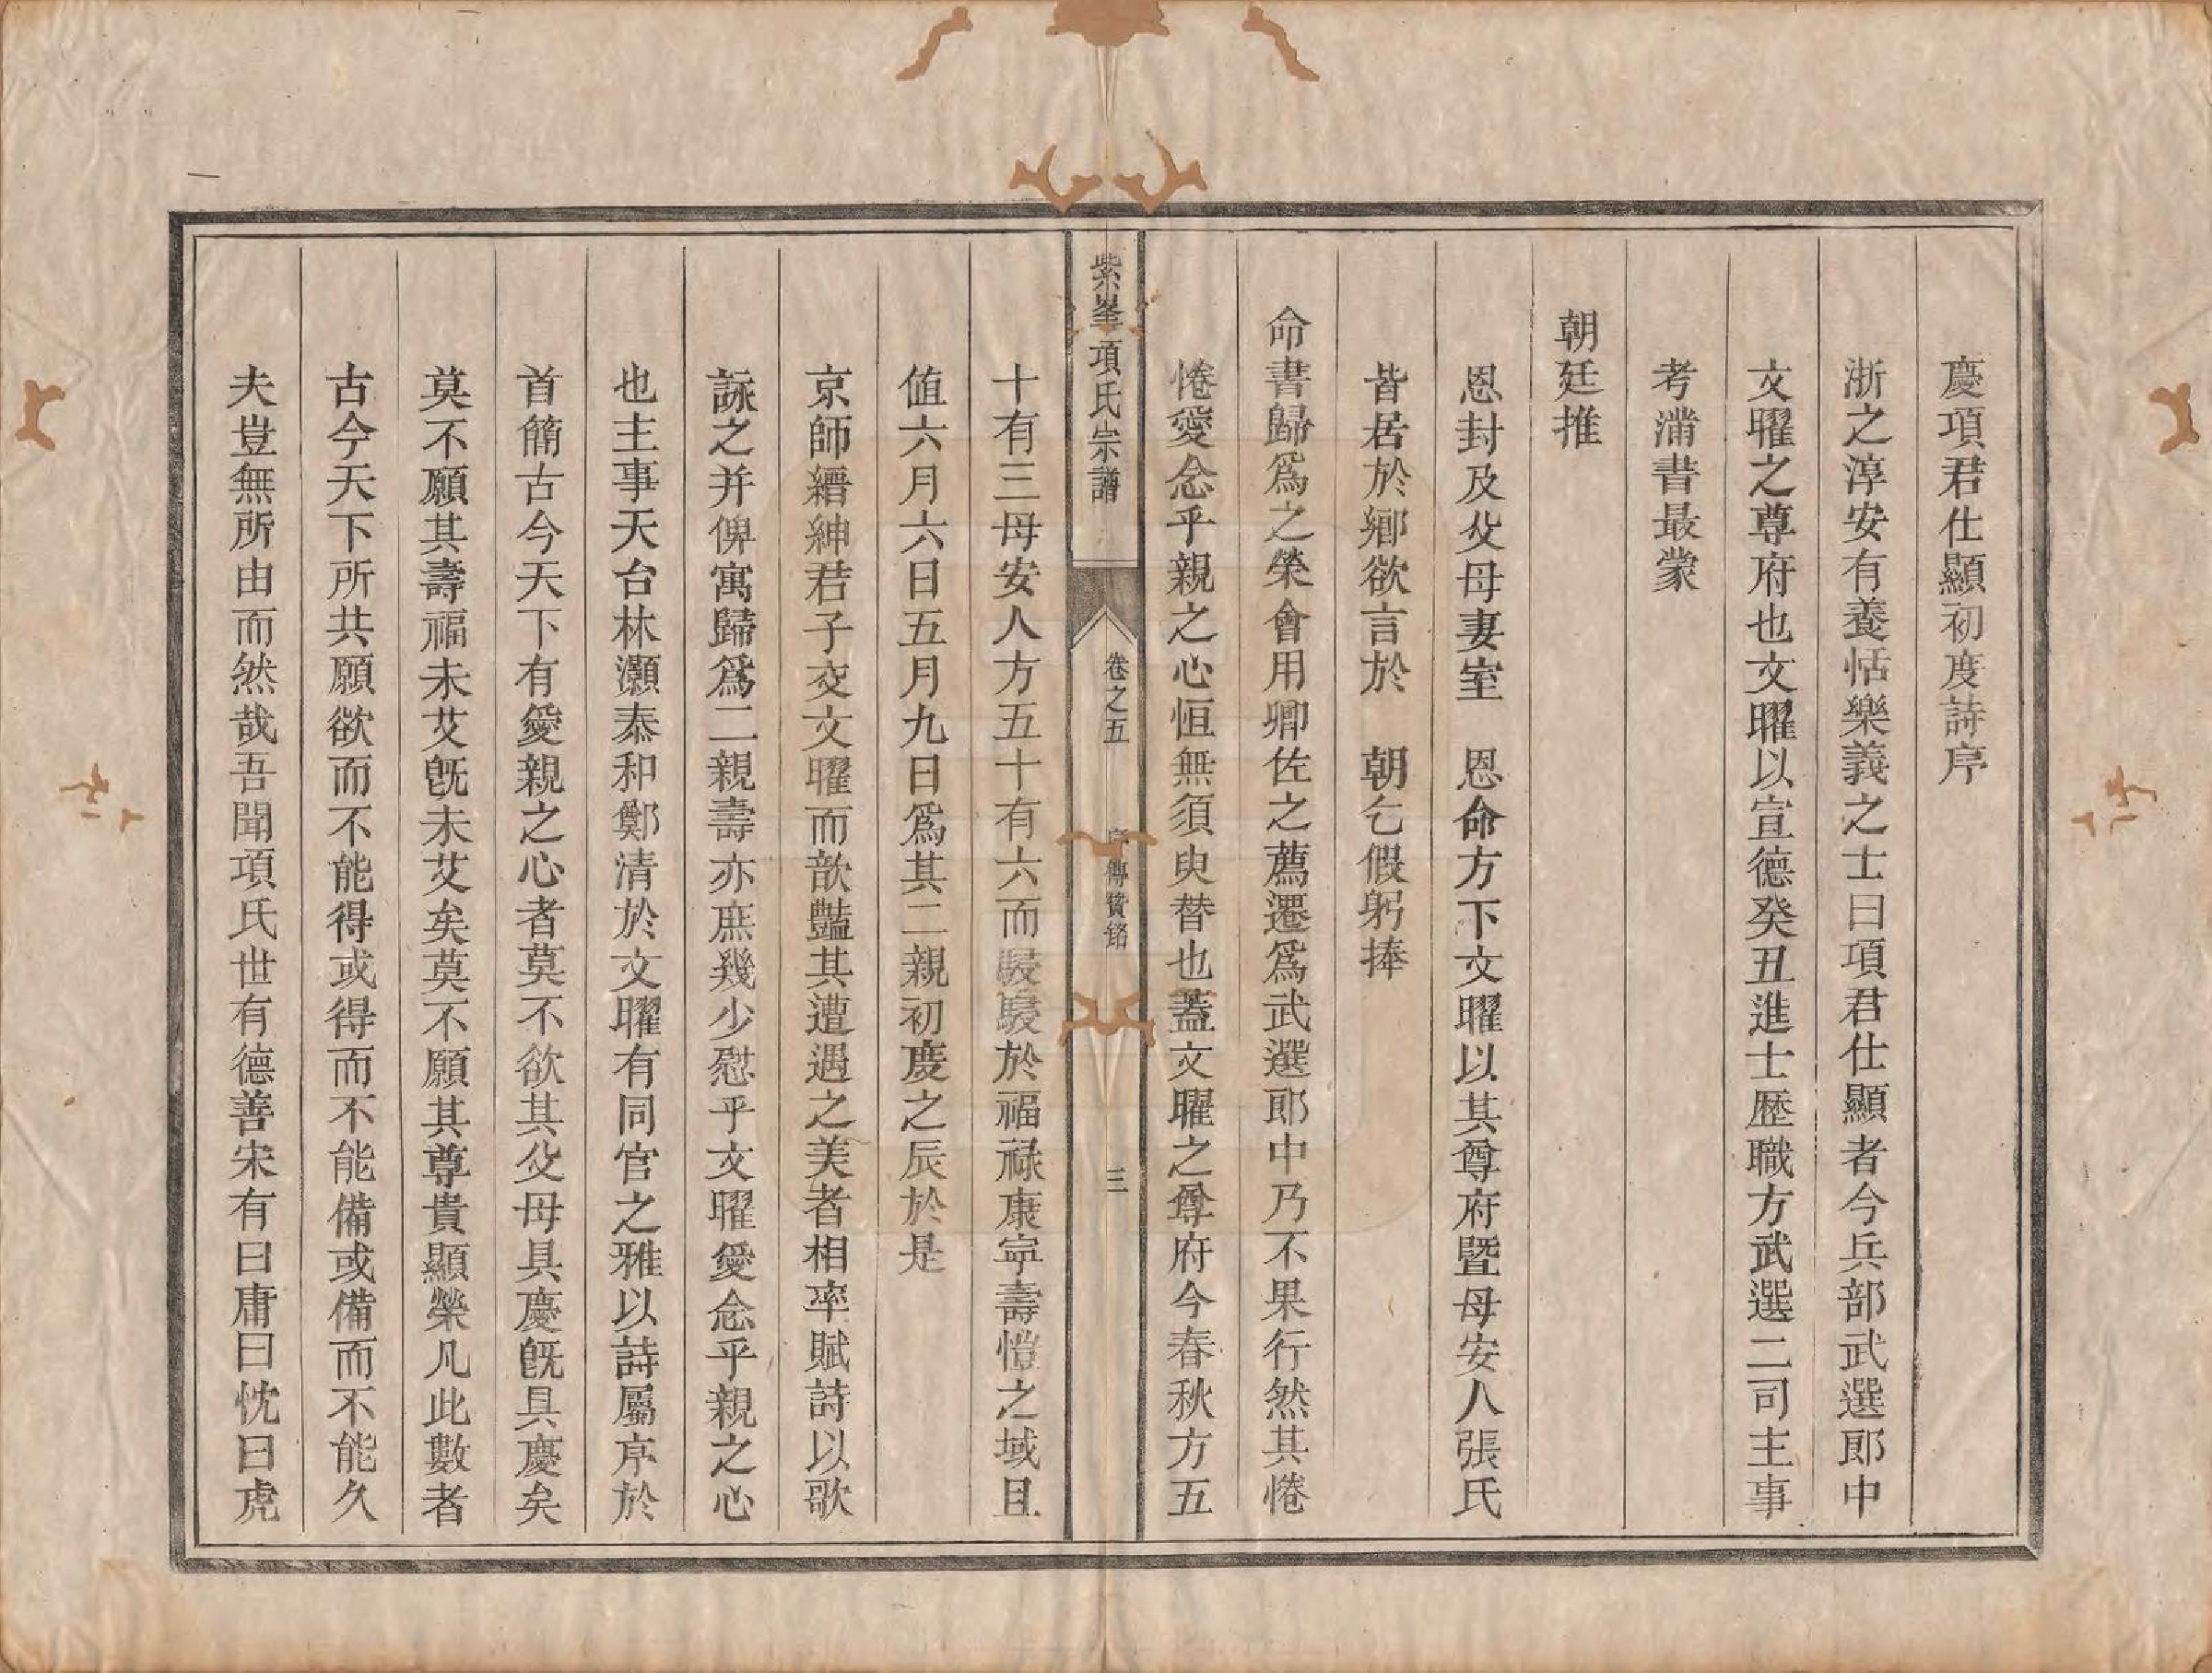 慶項君仕顯初度詩序
浙之淳安有養恬樂義之士曰項君仕顯者今兵部武選郎中
文曜之尊府也文曜以宣德癸丑進士歷職方武選二司主事
考滿書最蒙
朝廷推
恩封及父母妻室　恩命方下文曜以其尊府暨母安人張氏
皆居於鄉欲言於　朝乞假躬捧
命書歸爲之榮會用卿佐之薦遷爲武選郎中乃不果行然其惓
惓愛念乎親之心恒無須臾替也蓋文曜之尊府今春秋方五
紫峯項氏宗譜　卷之五　傳贊銘　三
十有三母安人方五十有六而駸駸於福祿康寧壽愷之域且
値六月六日五月九日爲其二親初慶之辰於是
京師縉紳君子交文曜而歆豔其遭遇之美者相率賦詩以歌
詠之并俾寓歸爲二親壽亦庶幾少慰乎文曜愛念乎親之心
也主事天台林灝泰和鄭清於文曜有同官之雅以詩屬序於
首簡古今天下有愛親之心者莫不欲其父母具慶旣具慶矣
莫不願其壽福未艾旣未艾矣莫不願其尊貴顯榮凡此數者
古今天下所共願欲而不能得或得而不能備或備而不能久
夫豈無所由而然哉吾聞項氏世有德善宋有曰庸曰忱曰虎